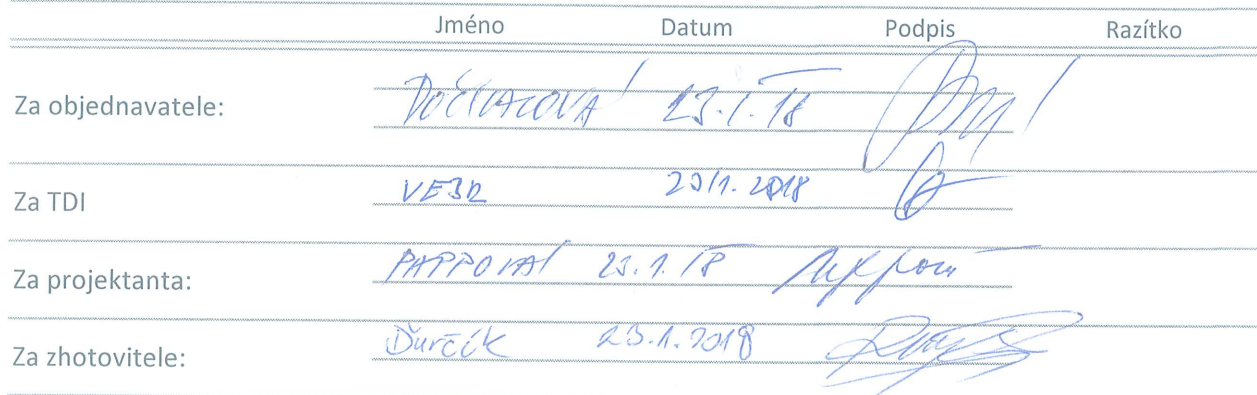 Jméno Datum Podpis Razítko
Za objednavatele: 23.1.18
Za TDI VEBR 2018
Za projektanta: PAPPOVÁ 23.1.18
Za zhotovitele: Ďurčík 23.1.2018